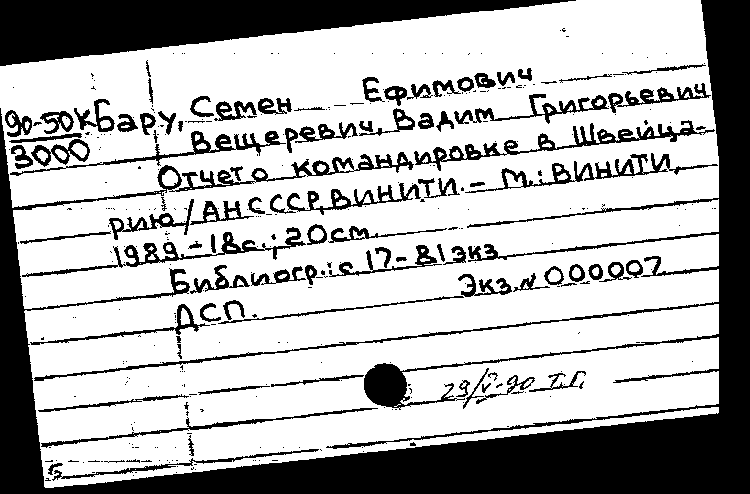 90-50к Бару, Семен Ефимович
3000 Вещеревич, Вадим Григорьевич
Отчет о командировке в Швейца-
рию / АН СССР, ВИНИТИ. - М.: ВИНИТИ,
1989. - 18 с.; 20 см.
Библиогр.: с. 17 - 81 экз.
ДСП. Экз. № 000007
29/V-90 Т.Г.
5